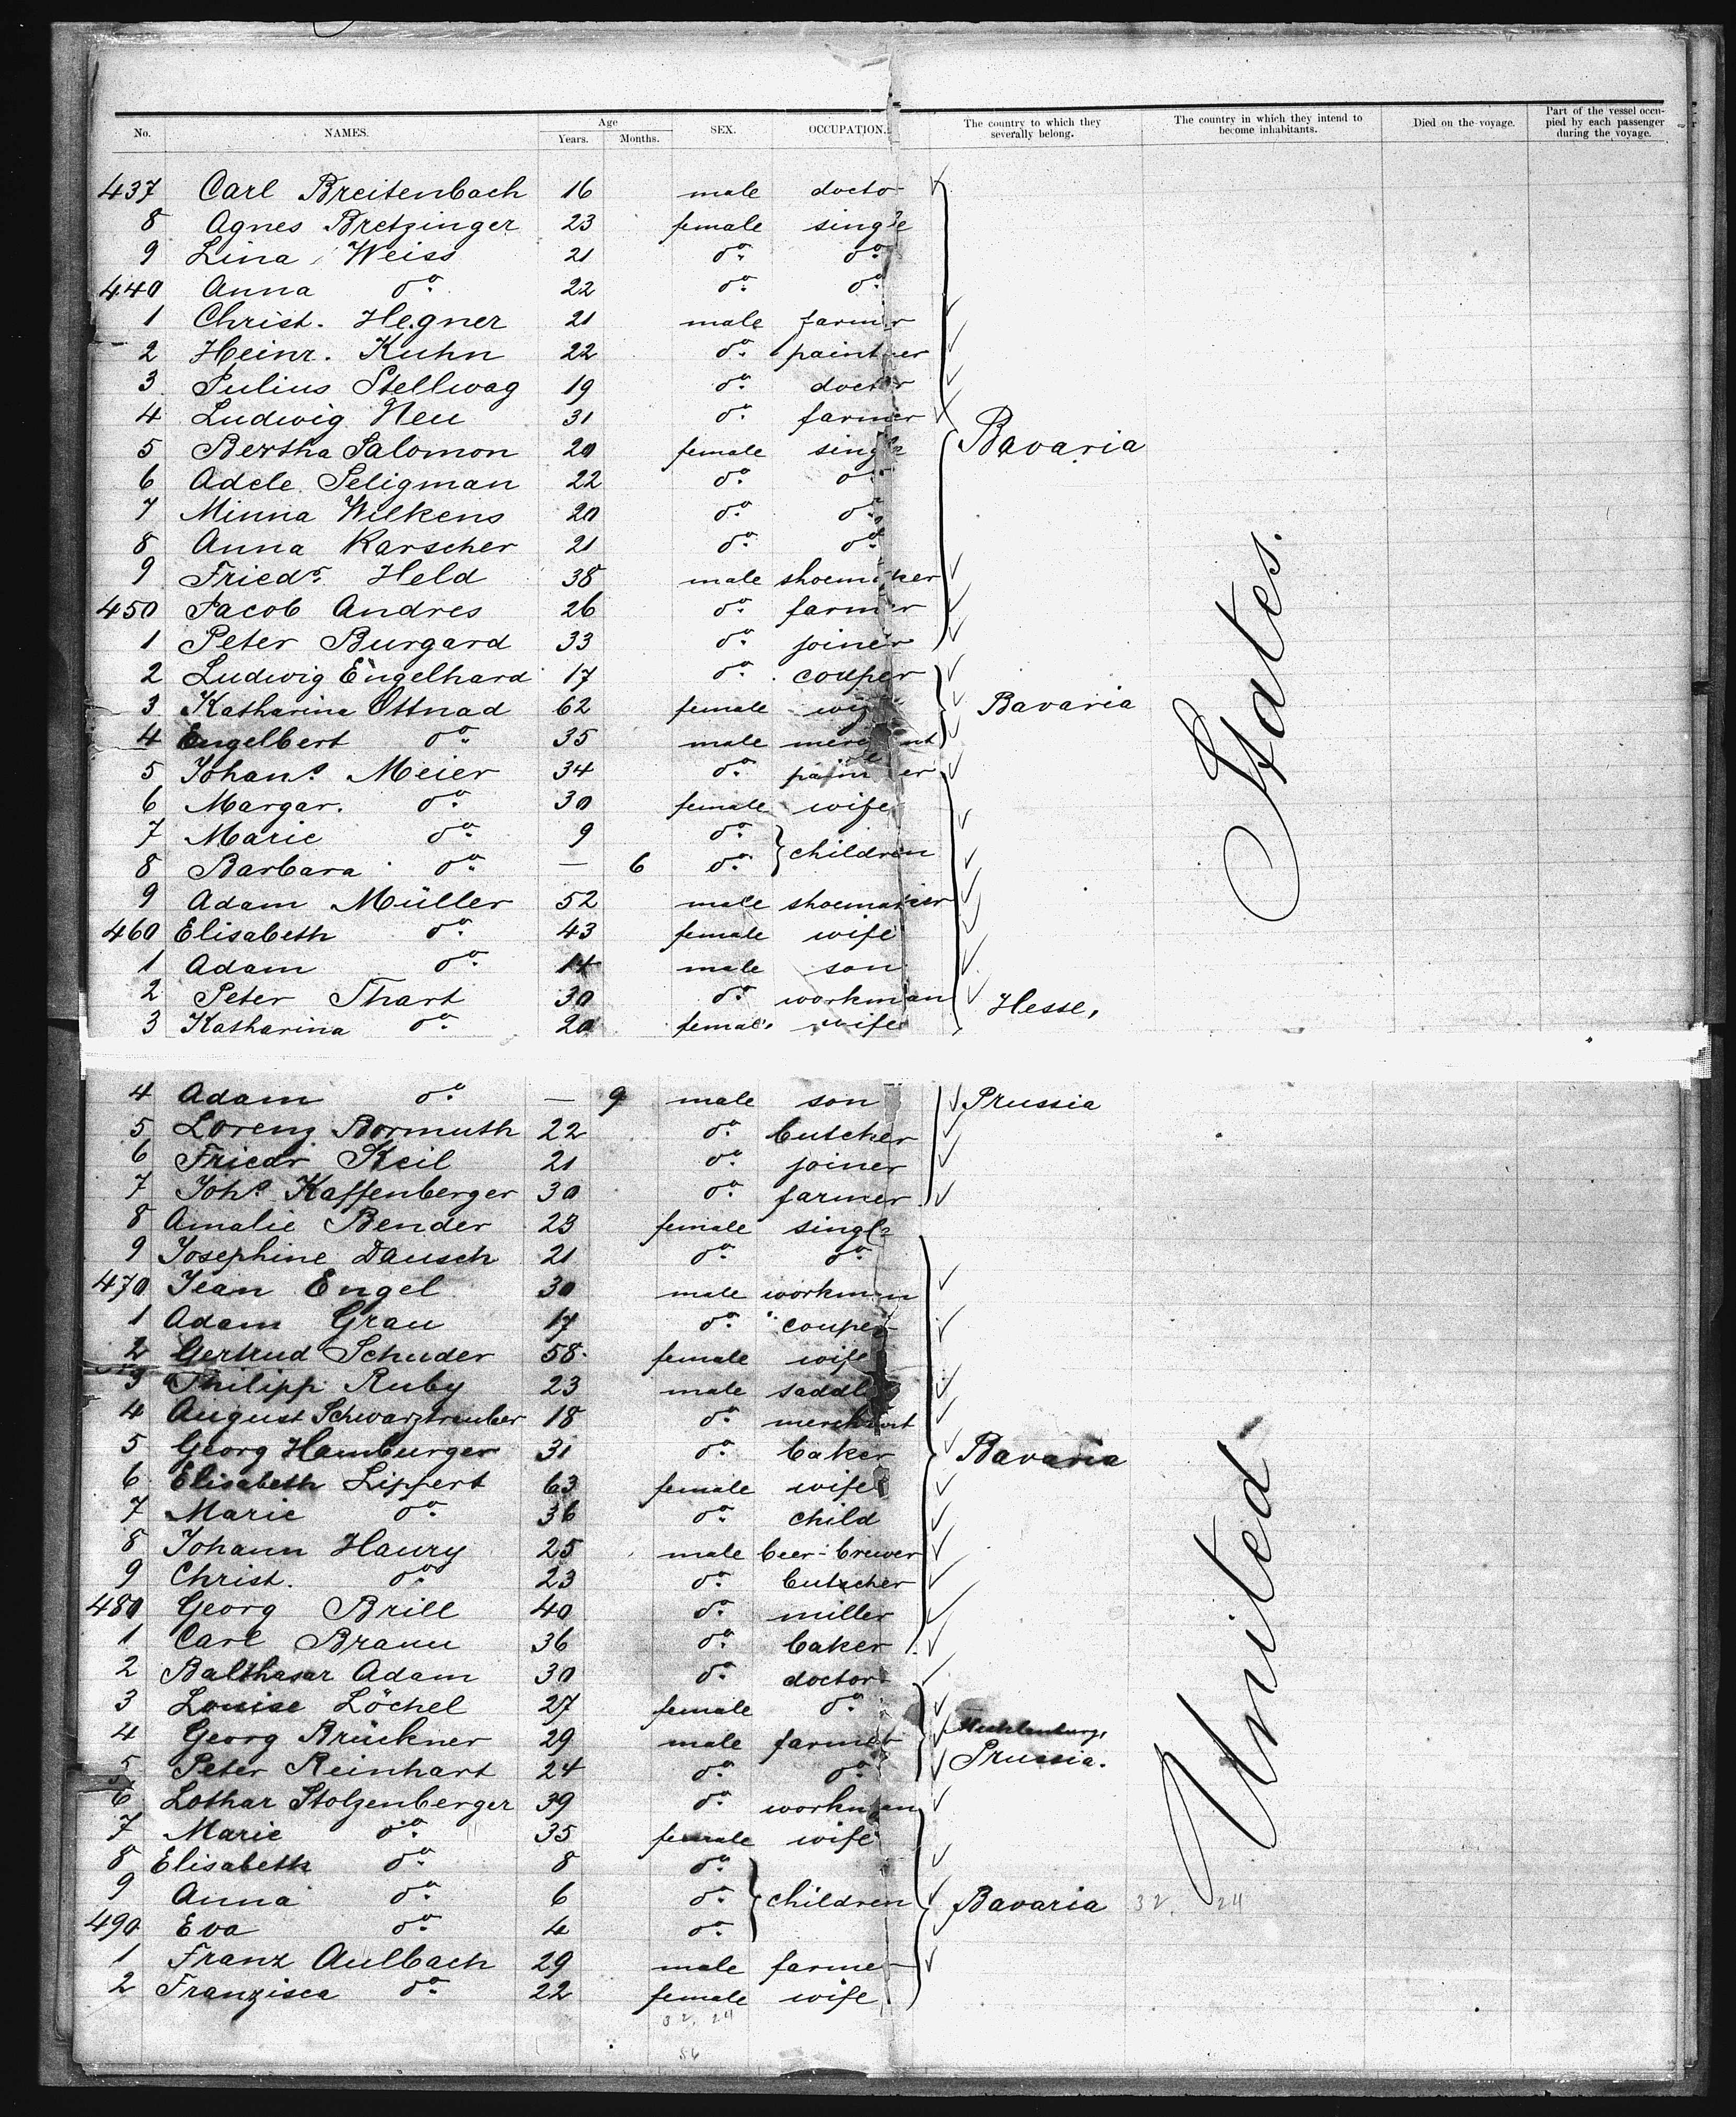 No. NAMES. Age Years. Months. SEX. OCCUPATION. The country to which they severally belong. The country in which they intend to become inhabitants. Died on the voyage. Part of the vessel occupied by each passenger during the voyage.
437 Carl Breitenbach 16 male docto
8 Agnes Bretzinger 23 female single
9 Lina Weiss 21 do. do.
440 Anna do. 22 do. do.
1 Christ. Hegner 21 male farmer
2 Heinr. Kuhn 22 do. paintner
3 Julius Stellwag 19 do. doctor
4 Ludwig Neu 31 do. farmer
5 Bertha Salomon 20 female single Bavaria
6 Adele Seligman 22 do. do.
7 Minna Wilkens 20 do. do.
8 Anna Karscher 21 do. do.
9 Friedr. Held 38 male shoemaker
450 Jacob Andres 26 do. farmer
1 Peter Burgard 33 do. joiner
2 Ludwig Engelhard 17 do. couper
3 Katharina Ottnad 62 female wife Bavaria
4 Engelbert do. 35 male merchant
5 Johans Meier 34 do. painter
6 Margar. do. 30 female wife
7 Marie do. 9 do. children
8 Barbara do. — 6 do.
9 Adam Müller 52 male shoemaker
460 Elisabeth do. 43 female wife
1 Adam do. 14 male son
2 Peter Thart 30 do. workman Hesse,
3 Katharina do. 20 female wife
4 Adam do. — 9 male son Prussia
5 Lorenz Bormuth 22 do. butcher
6 Friedr Keil 21 do. joiner
7 Johs Kaffenberger 30 do. farmer
8 Amalie Bender 23 female single
9 Josephine Dausch 21 do. do.
470 Jean Engel 30 male workman
1 Adam Grau 17 do. couper
2 Gertrud Schuder 58 female wife
3 Philipp Ruby 23 male saddler
4 August Schwarztrauber 18 do. merchant
5 Georg Hamburger 31 do. baker Bavaria
6 Elisabeth Lippert 63 female wife
7 Marie do. 36 do. child
8 Johann Haury 25 male beer-brewer
9 Christ. do. 23 do. butscher
480 Georg Brill 40 do. miller
1 Carl Braun 36 do. baker
2 Balthasar Adam 30 do. doctor
3 Louise Löchel 27 female do.
4 Georg Brückner 29 male farmer Mecklenburg,
5 Peter Reinhart 24 do. do. Prussia.
6 Lothar Stolzenberger 39 do. workman
7 Marie do. 35 female wife
8 Elisabeth do. 8 do.
9 Anna do. 6 do. children Bavaria 32. 24
490 Eva do. 4 do.
1 Franz Aulbach 29 male farmer
2 Franzisca do. 22 female wife
32. 24
56
United States.